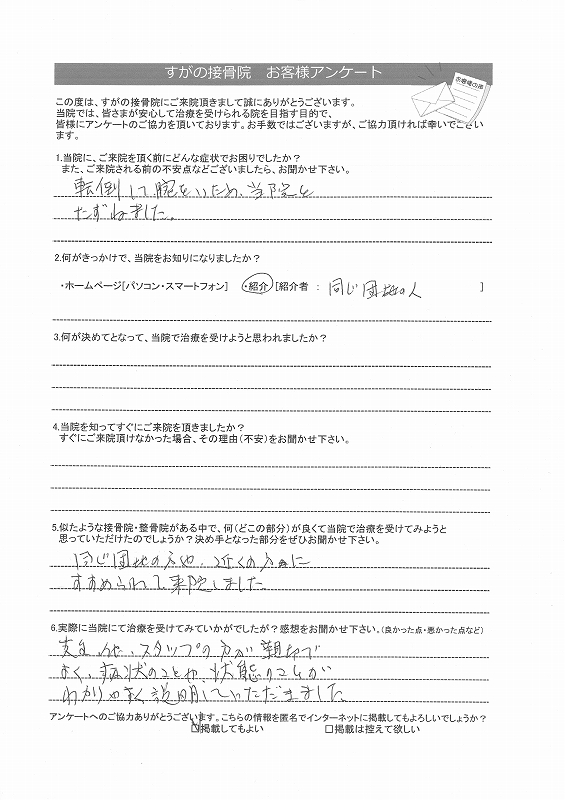 すがの接骨院　お客様アンケート
お客様の声
この度は、すがの接骨院にご来院頂きまして誠にありがとうございます。
当院では、皆さまが安心して治療を受けられる院を目指す目的で、
皆様にアンケートのご協力を頂いております。お手数ではございますが、ご協力頂ければ幸いでござい
ます。
1.当院に、ご来院を頂く前にどんな症状でお困りでしたか？
また、ご来院される前の不安点などございましたら、お聞かせ下さい。
転倒して腕をいため、当院を
たずねました。
2.何がきっかけで、当院をお知りになりましたか？
・ホームページ[パソコン・スマートフォン]　・紹介　[紹介者　：　同じ団地の人　]
3.何が決めてとなって、当院で治療を受けようと思われましたか？
4.当院を知ってすぐにご来院を頂きましたか？
すぐにご来院頂けなかった場合、その理由（不安）をお聞かせ下さい。
5.似たような接骨院・整骨院がある中で、何（どこの部分）が良くて当院で治療を受けてみようと
思っていただけたのでしょうか？決め手となった部分をぜひお聞かせ下さい。
同じ団地の方や、近くの方に
すすめられて来院しました
6.実際に当院にて治療を受けてみていかがでしたが？感想をお聞かせ下さい。（良かった点・悪かった点など）
先生や、スタッフの方が親切で
よく、病状のことや、状態のことが
わかりやすく説明していただきました
アンケートへのご協力ありがとうございます。こちらの情報を匿名でインターネットに掲載してもよろしいでしょうか？
☑掲載してもよい　□掲載は控えて欲しい